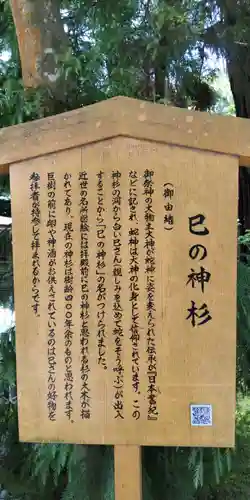 巳の神杉
(御由緒)
御祭神の大物主大神が蛇神に姿を変えられた伝承が『日本書紀』
などに記され、蛇神は大神の化身として信仰されています。
神杉の洞から白い巳さん(親しみを込めて蛇をそう呼ぶ)が出入
することから「巳の神杉」の名がつけられました。
近世の名所図絵には拝殿前に巳の神杉と思われる杉の大木が描
かれており、現在の神杉は樹齢四〇〇年余のものと思われます。
巨樹の前に卵や神酒がお供えされているのは巳さんの好物を
参拝者が持参して拝まれるからです。